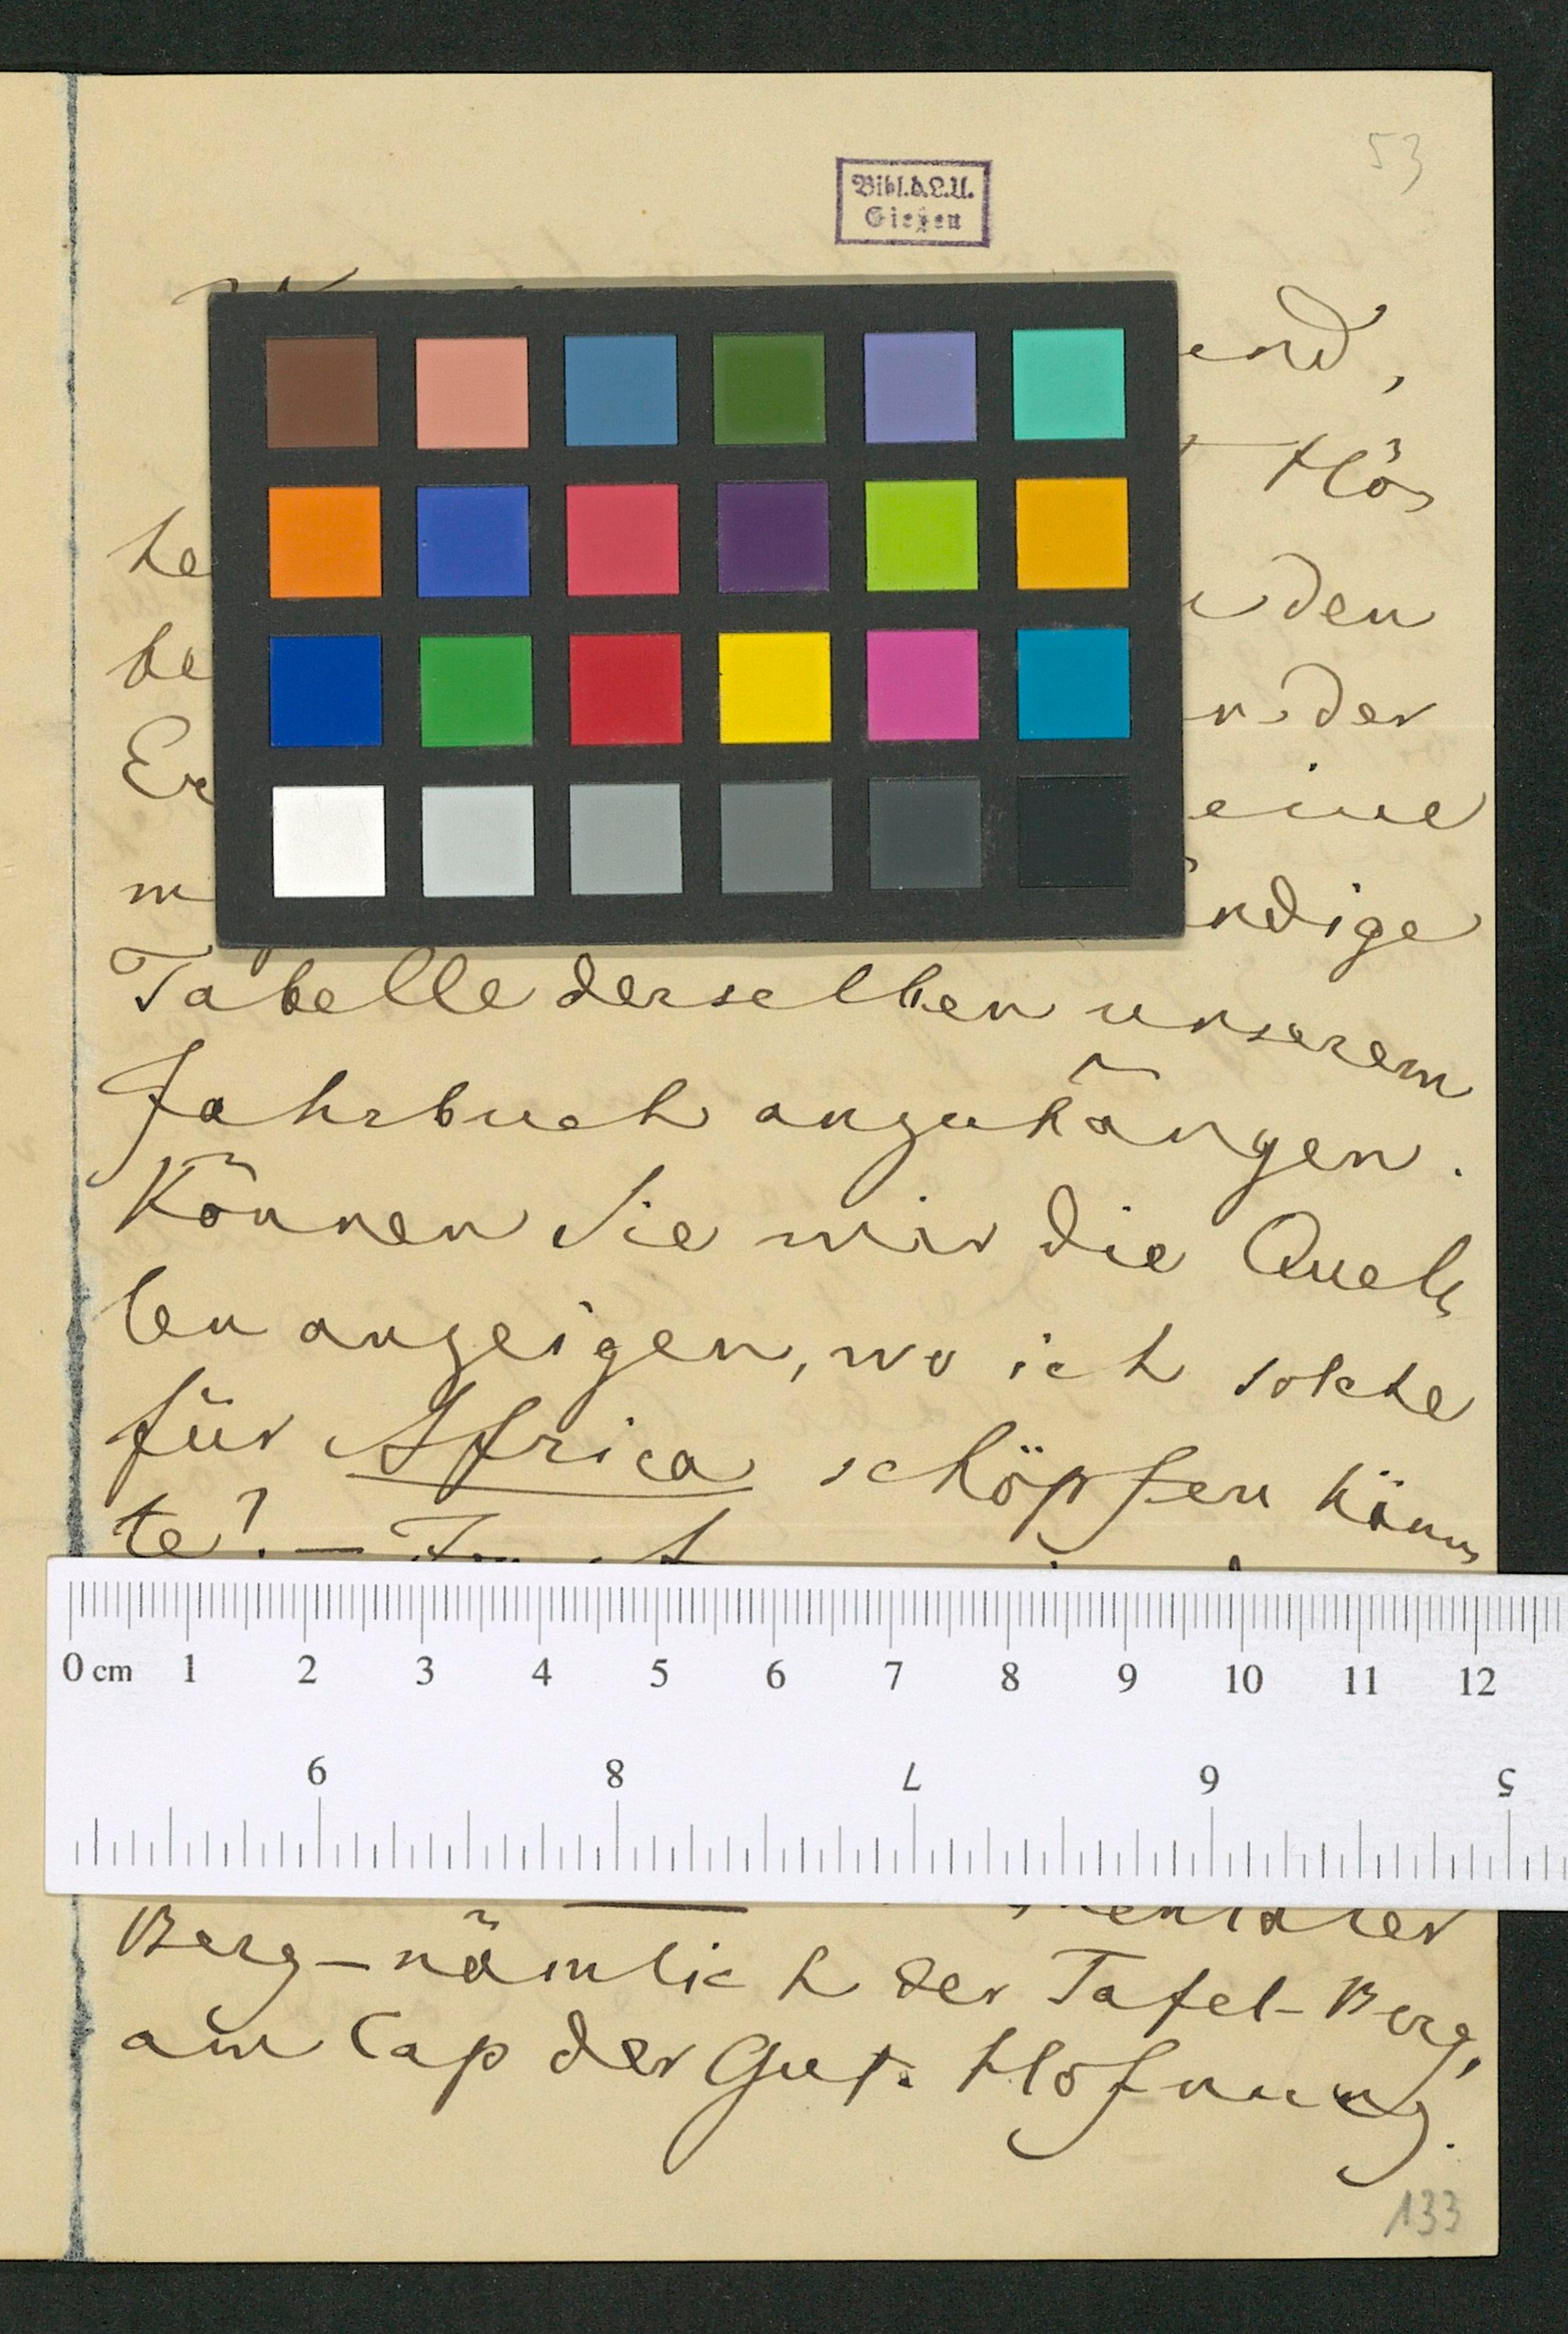 53
Bibl.d.L.U.
Gießen
end,
Hö-
he
den
be
der
Er
eine
m
ndige
Tabelle derselben unserem
Jahrbuch anzuhängen.
Können Sie mir die Quel-
len anzeigen, wo ich solche
für Africa schöpfen könn-
te? —
0 cm 1 2 3 4 5 6 7 8 9 10 11 12
9 8 7 6 5
Berg – nämlich der Tafel-Berg,
am Cap der Gut. Hofnung.
133